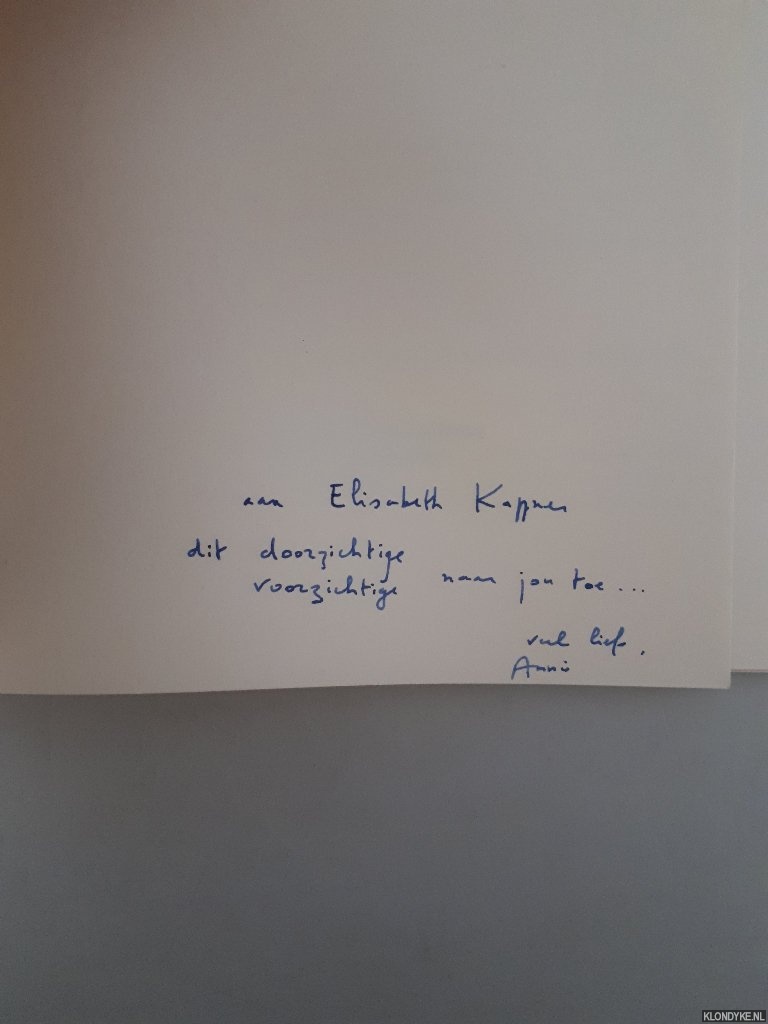 aan Elisabeth
dit doorzichtige
voorzichtige naar jou toe ...
veel liefs,
Annie
KLONDYKE.NL